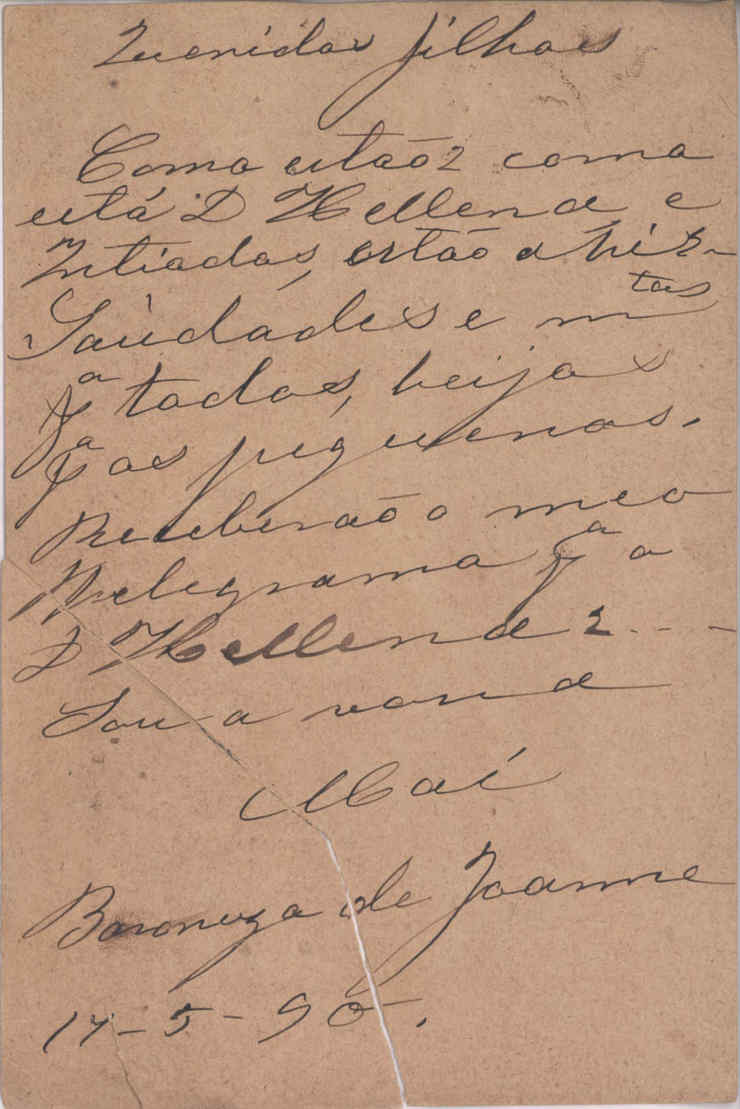 Queridos filhos
Como estão? como
está D Hellena, e
estão ahi?
Saudades e mtas
pa todos, beijos
pa os piquenos.
Receberão o meo
Telegrama pa a
D Hellena?...
Sou a
Mai
Baroneza de Joanne
17-5-90.